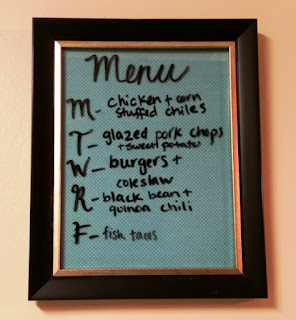 Menu
M- chicken + corn
stuffed chiles
T- glazed pork chops
+ sweet potato
W- burgers +
coleslaw
R- black bean +
quinoa chili
F- fish tacos